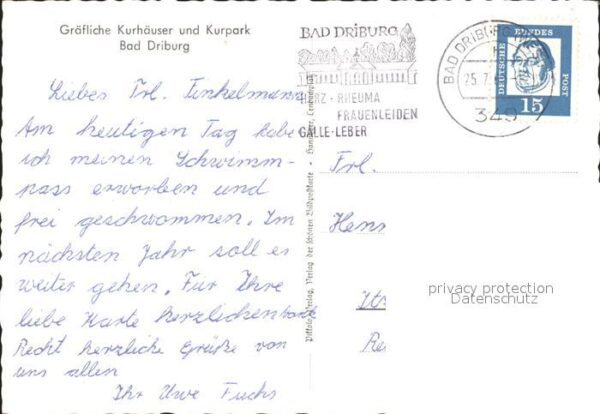 Gräfliche Kurhäuser und Kurpark
Bad Driburg
Liebes Frl. Finkelmann
Am heutigen Tag habe
ich meinen Schwimm-
pass erworben und
frei geschwommen. Im
nächsten Jahr soll es
weiter gehen. Für Ihre
liebe Karte herzlichen Dank
Recht herzliche Grüße von
uns allen
Ihr Uwe Fuchs
BAD DRIBURG
HERZ · RHEUMA
FRAUENLEIDEN
GALLE · LEBER
BAD DRIBURG
25.7.
349
DEUTSCHE BUNDESPOST
15
Verlag der schönen Bildpostkarte
Frl.
Hans
privacy protection
Datenschutz